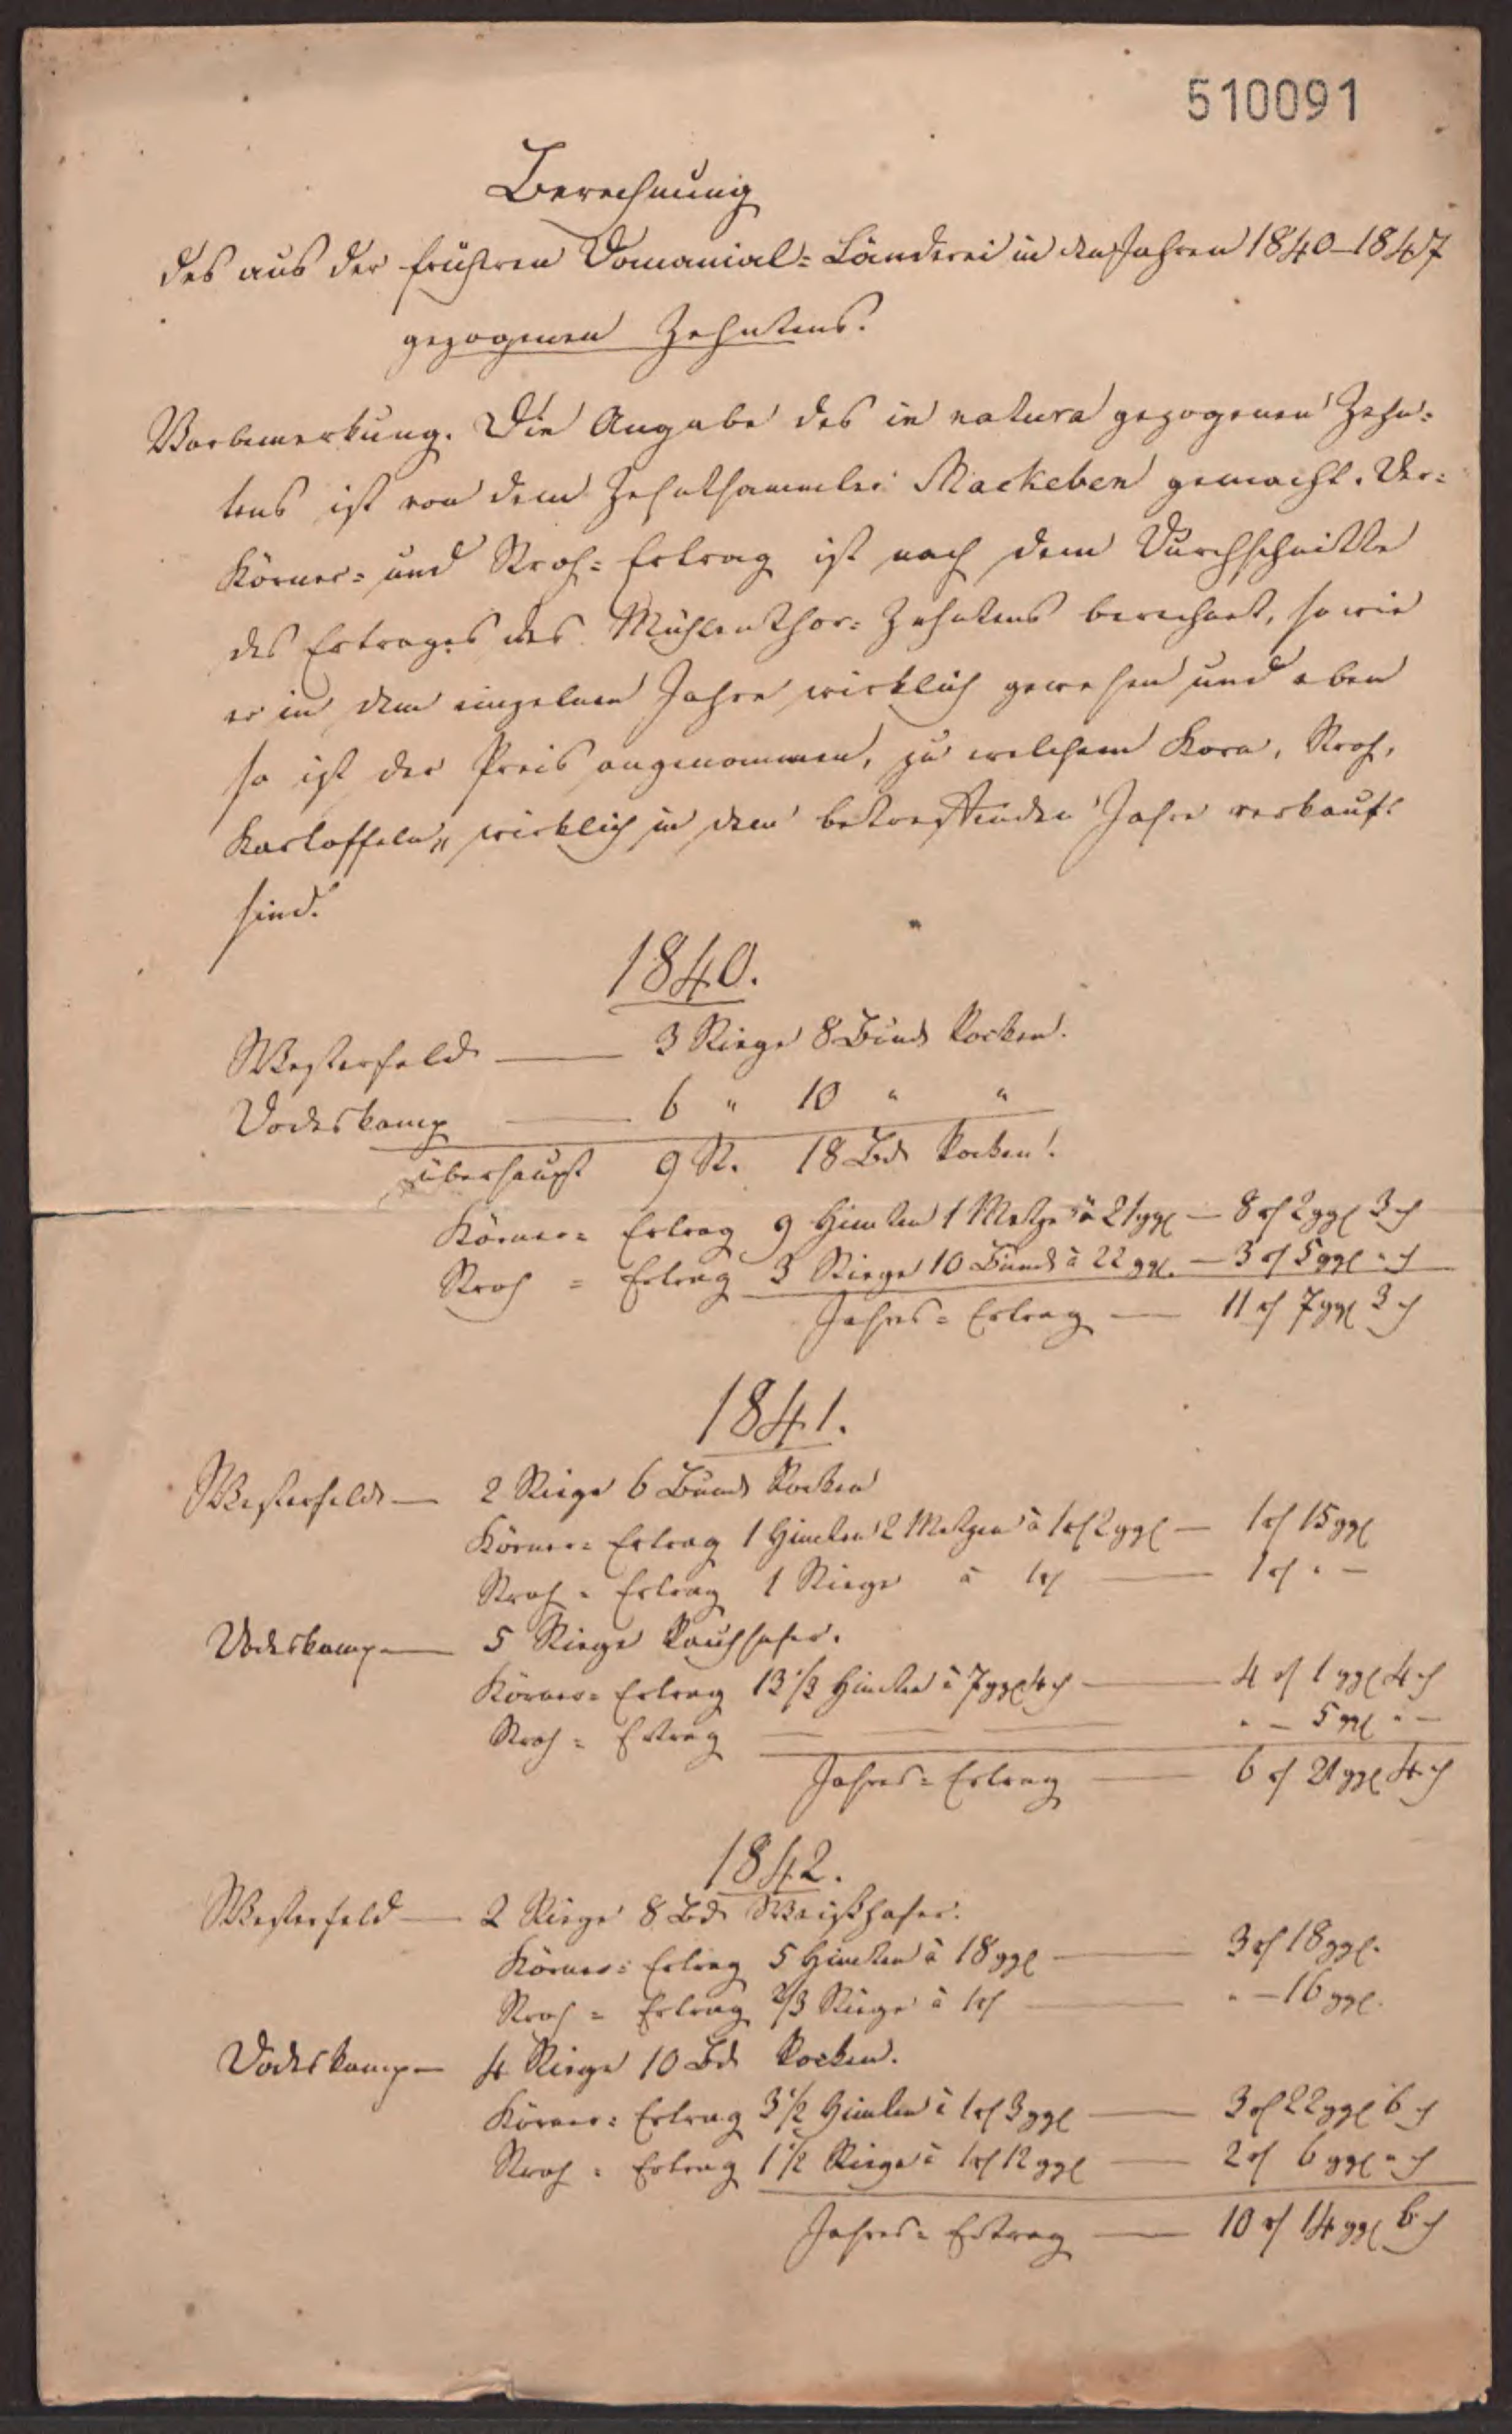 510091
Berechnung
des aus der früheren Domanial-Länderei in den Jahren 1840–1847
gezogenen Zehntens.
Vorbemerkung. Die Angabe des in natura gezogenen Zehn-
tens ist von dem Zehntsammler Mackeben gemacht. Der
Körner- und Stroh-Ertrag ist nach dem Durchschnitte
des Ertrages des Mühlenthor-Zehntens berechnet, so wie
er in dem einzelnen Jahre wirklich gewesen und eben
so ist der Preis angenommen, zu welchem Korn, Stroh,
Kartoffeln, wirklich in dem betreffenden Jahre verkauft
sind.
1840.
Westerfeld — 3 Stiege 8 Bund Rocken.
Vodeskamp — 6 " 10 " "
überhaupt 9 St. 18 Bd Rocken.
Körner-Ertrag 9 Himten 1 Metze à 21 ggl — 8 rl 2 ggl 3 d
Stroh-Ertrag 3 Stiege 10 Bund à 22 ggl. — 3 rl 5 ggl " d
Jahres-Ertrag — 11 rl 7 ggl 3 d
1841.
Westerfeld — 2 Stiege 6 Bund Rocken
Körner-Ertrag 1 Himten 2 Metzen à 1 rl 2 ggl — 1 rl 15 ggl
Stroh-Ertrag 1 Stiege à 1 rl — 1 rl " —
Vodeskamp — 5 Stiege Rauhhafer.
Körner-Ertrag 13 1/3 Himten à 7 ggl 4 d — 4 rl 1 ggl 4 d
Stroh-Ertrag — — — " — 5 ggl " —
Jahres-Ertrag — 6 rl 21 ggl 4 d
1842.
Westerfeld — 2 Stiege 8 Bd Weißhafer.
Körner-Ertrag 5 Himten à 18 ggl — 3 rl 18 ggl.
Stroh-Ertrag 2/3 Stiege à 1 rl — " — 16 ggl.
Vodeskamp — 4 Stiege 10 Bd Rocken.
Körner-Ertrag 3 1/2 Himten à 1 rl 3 ggl — 3 rl 22 ggl 6 d
Stroh-Ertrag 1 1/2 Stiege à 1 rl 12 ggl — 2 rl 6 ggl " d
Jahres-Ertrag — 10 rl 14 ggl 6 d